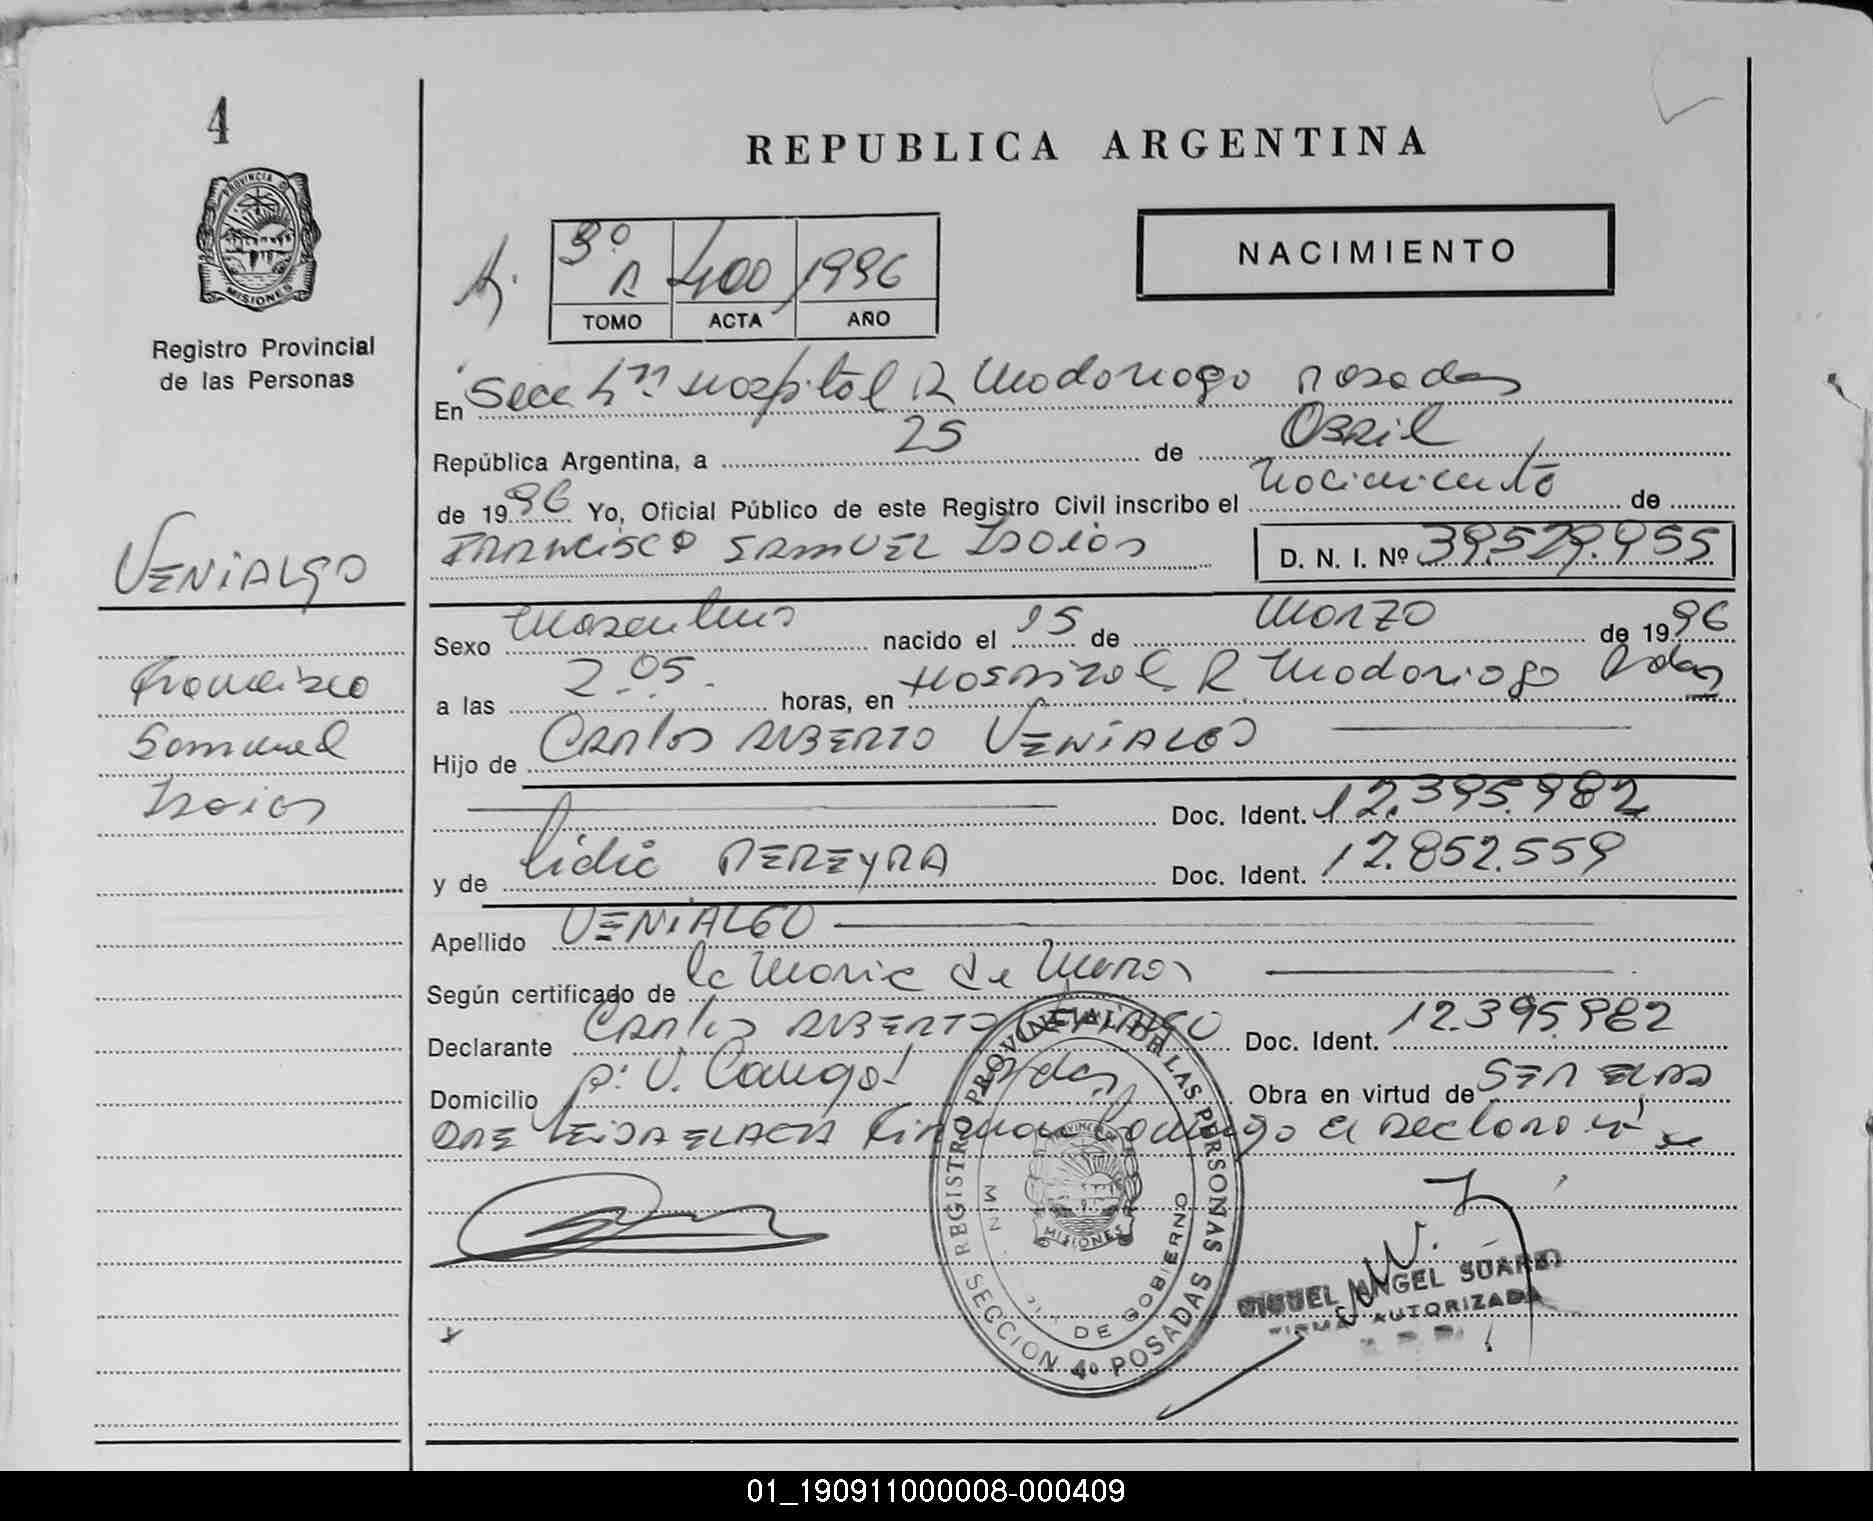 4
PROVINCIA D
MISIONES
Registro Provincial
de las Personas
REPUBLICA ARGENTINA
NACIMIENTO
3º 400 1996
TOMO ACTA AÑO
En Hospital R Madariaga Posadas
República Argentina, a 25 de Abril
de 1996 Yo, Oficial Público de este Registro Civil inscribo el Nacimiento de
FRANCISCO SAMUEL Isaias D. N. I. Nº 39.529.955
VENIALGO
Francisco
Samuel
Isaias
Sexo Masculino nacido el 15 de Marzo de 1996
a las 2.05. horas, en Hospital R Madariaga Pdas
Hijo de Carlos ALBERTO VENIALGO
Doc. Ident. 12.395.982
y de Lidia PEREYRA Doc. Ident. 12.852.559
Apellido VENIALGO
Según certificado de la Maria de
Declarante Carlos ALBERTO VENIALGO Doc. Ident. 12.395.982
Domicilio Pdas Obra en virtud de SER EL PA
DRE LEIDA EL ACTA Firman Conmigo el Declarante
REGISTRO PROVINCIAL DE LAS PERSONAS
SECCION 4º POSADAS
MIN DE GOBIERNO
PROVINCIA
MISIONES
MIGUEL ANGEL SUAREZ
FIRMA AUTORIZADA
01_190911000008-000409